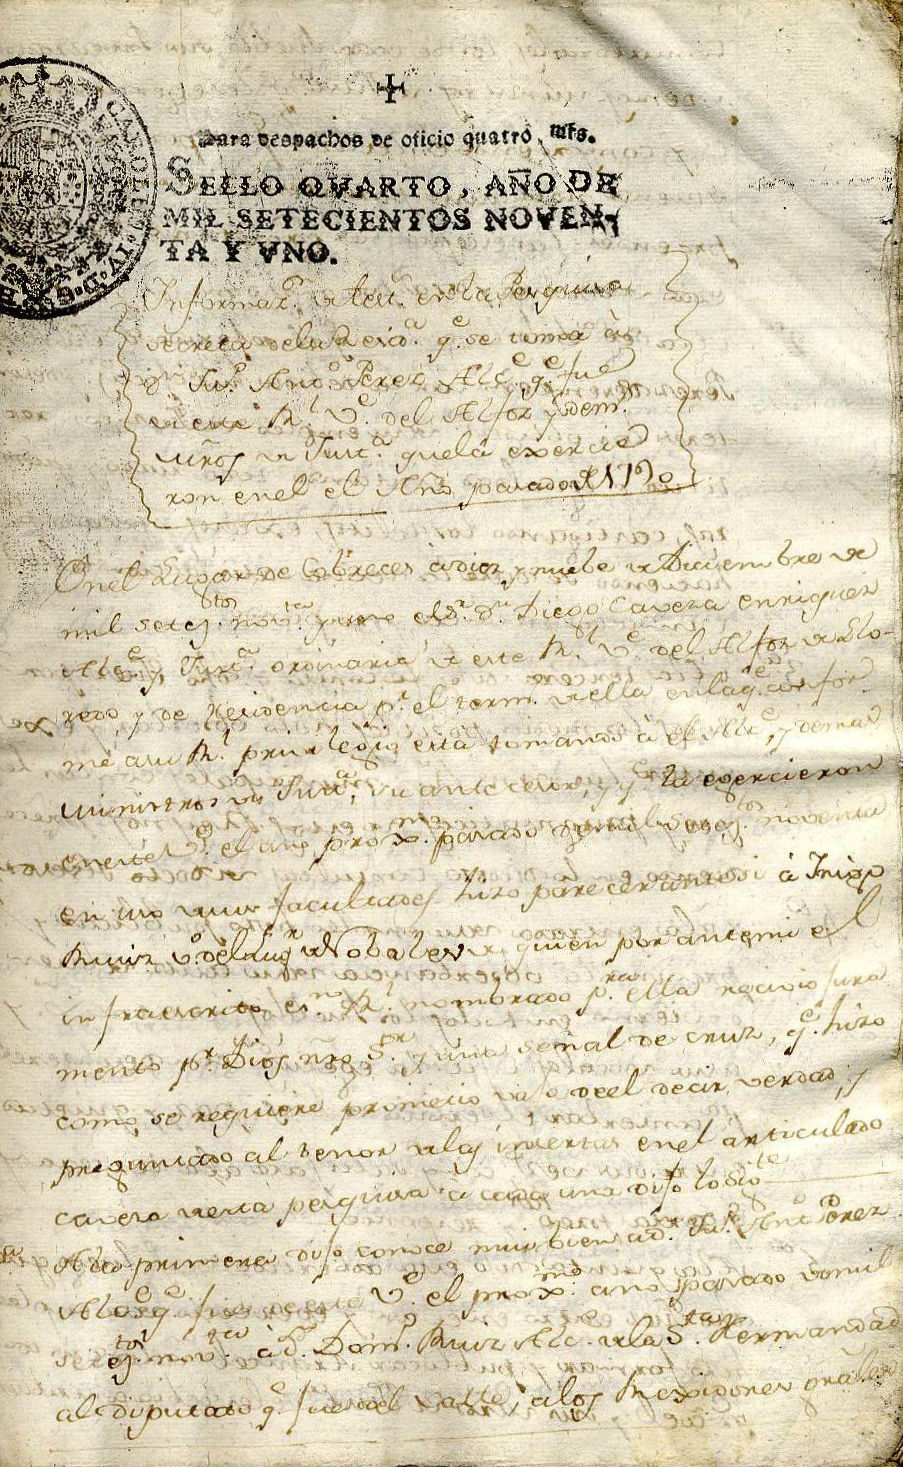 +
Para despachos de oficio quatro mrs.
SELLO QVARTO, AÑO DE
MIL SETECIENTOS NOVEN-
TA Y VNO.
Informaz.n de test.s en la Pesquisa
secreta de la Resid.a q.e se toma à
d.n Ju.n Ant.o Perez Alc.e q.e fue
de este R.l V.e del Alfoz y dem.s
Mrõs de Just.a que la exercie
ron en el el Año pasado de 1790
En el Lugar de Cobreces à diez y nuebe de Diciembre de
mil setez.tos nov.ta y uno el S.r d.n Diego Caveza Enriquez
Alc.e y Just.a ordinaria de este R.l V.e del Alfoz de Llo-
redo y de Residencia p.r el term.o de ella en la q.e confor
me a su R.l privilegio esta tomando à el Alc.e, y demas
Ministros de Just.a, su antecesor, y q.e la egercieron
en este V.e el año prox.mo pasado de mil setez.tos noventa
en uso de sus facultades hizo parecer ante si à
Ruiz v.o del Lug.r de Nobales, de quien por ante mi el
infraescrito es.no R.l nombrado p.ra ella recivio jura
mento p.r Dios nrõ S.r y una señal de cruz, q.e hizo
como se requiere prometio de decir verdad, y
preguntado al tenor de las insertas en el articulado
cavera de esta pesquisa à cada una dijo lo sig.te
A la primera dijo conoce mui bien à d.n Ju.n Ant.o Perez
Alc.e q.e fue de este V.e el prox.mo año pasado de mil
setez.tos nov.ta à D.n Dom.o Ruiz Alc.e de la S.ta Hermandad
al Diputado q.e fue del Valle, à los Rexidores grãles